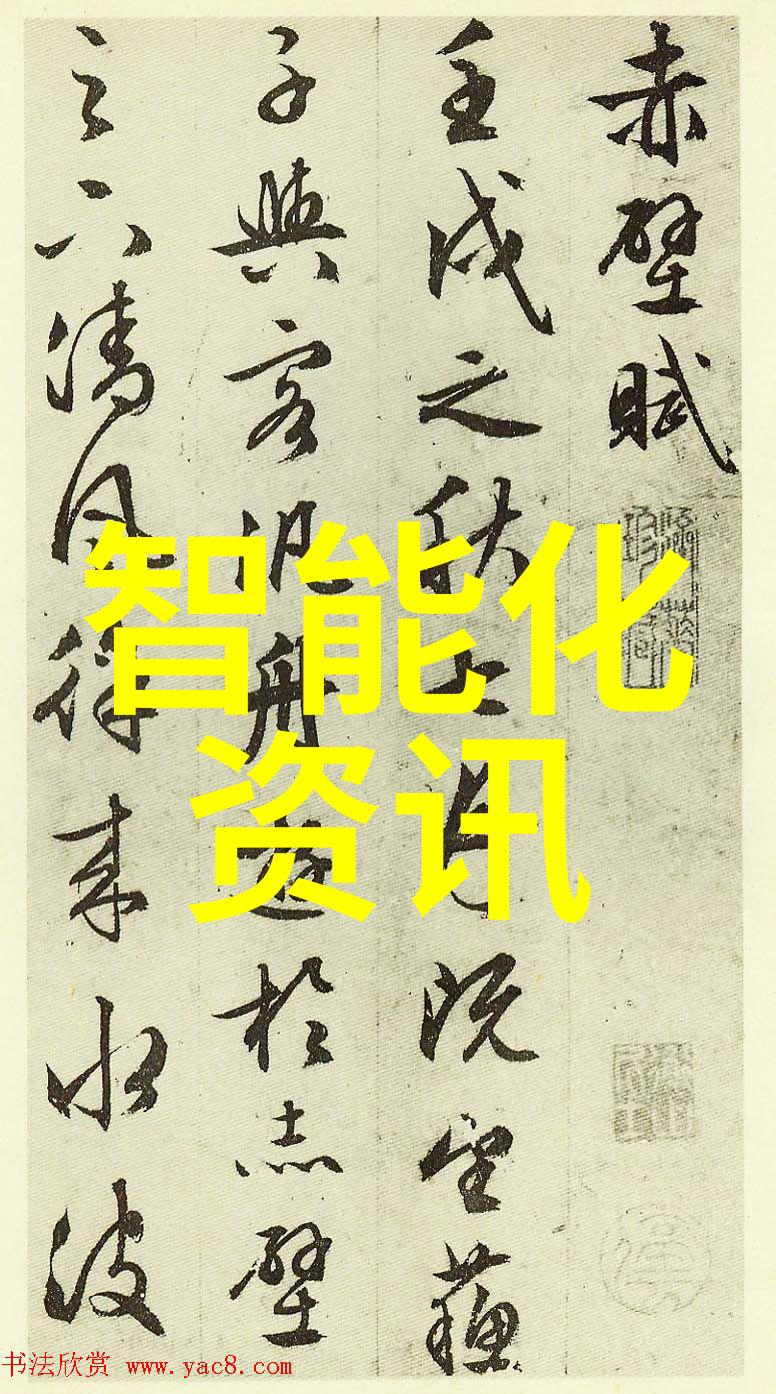 赤壁賦
壬戌之秋七月既望蘇
子與客泛舟遊於赤壁
之下清風徐來水波
智能化
资讯
书法欣赏 www.yac8.com